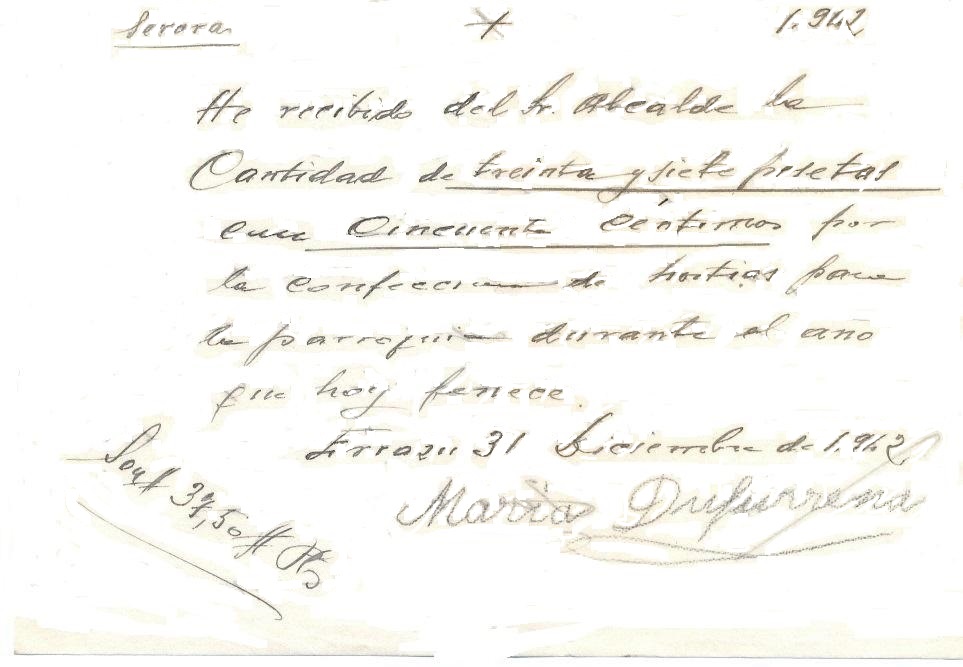 Serora 1.942
He recibido del Sr. Alcalde la
Cantidad de treinta y siete pesetas
con Cincuenta céntimos por
la confeccion de hostias para
la parroquia durante el año
que hoy fenece.
Errazu 31 Diciembre de 1.942
Maria Dufurrena
Son # 37,50 # Pts